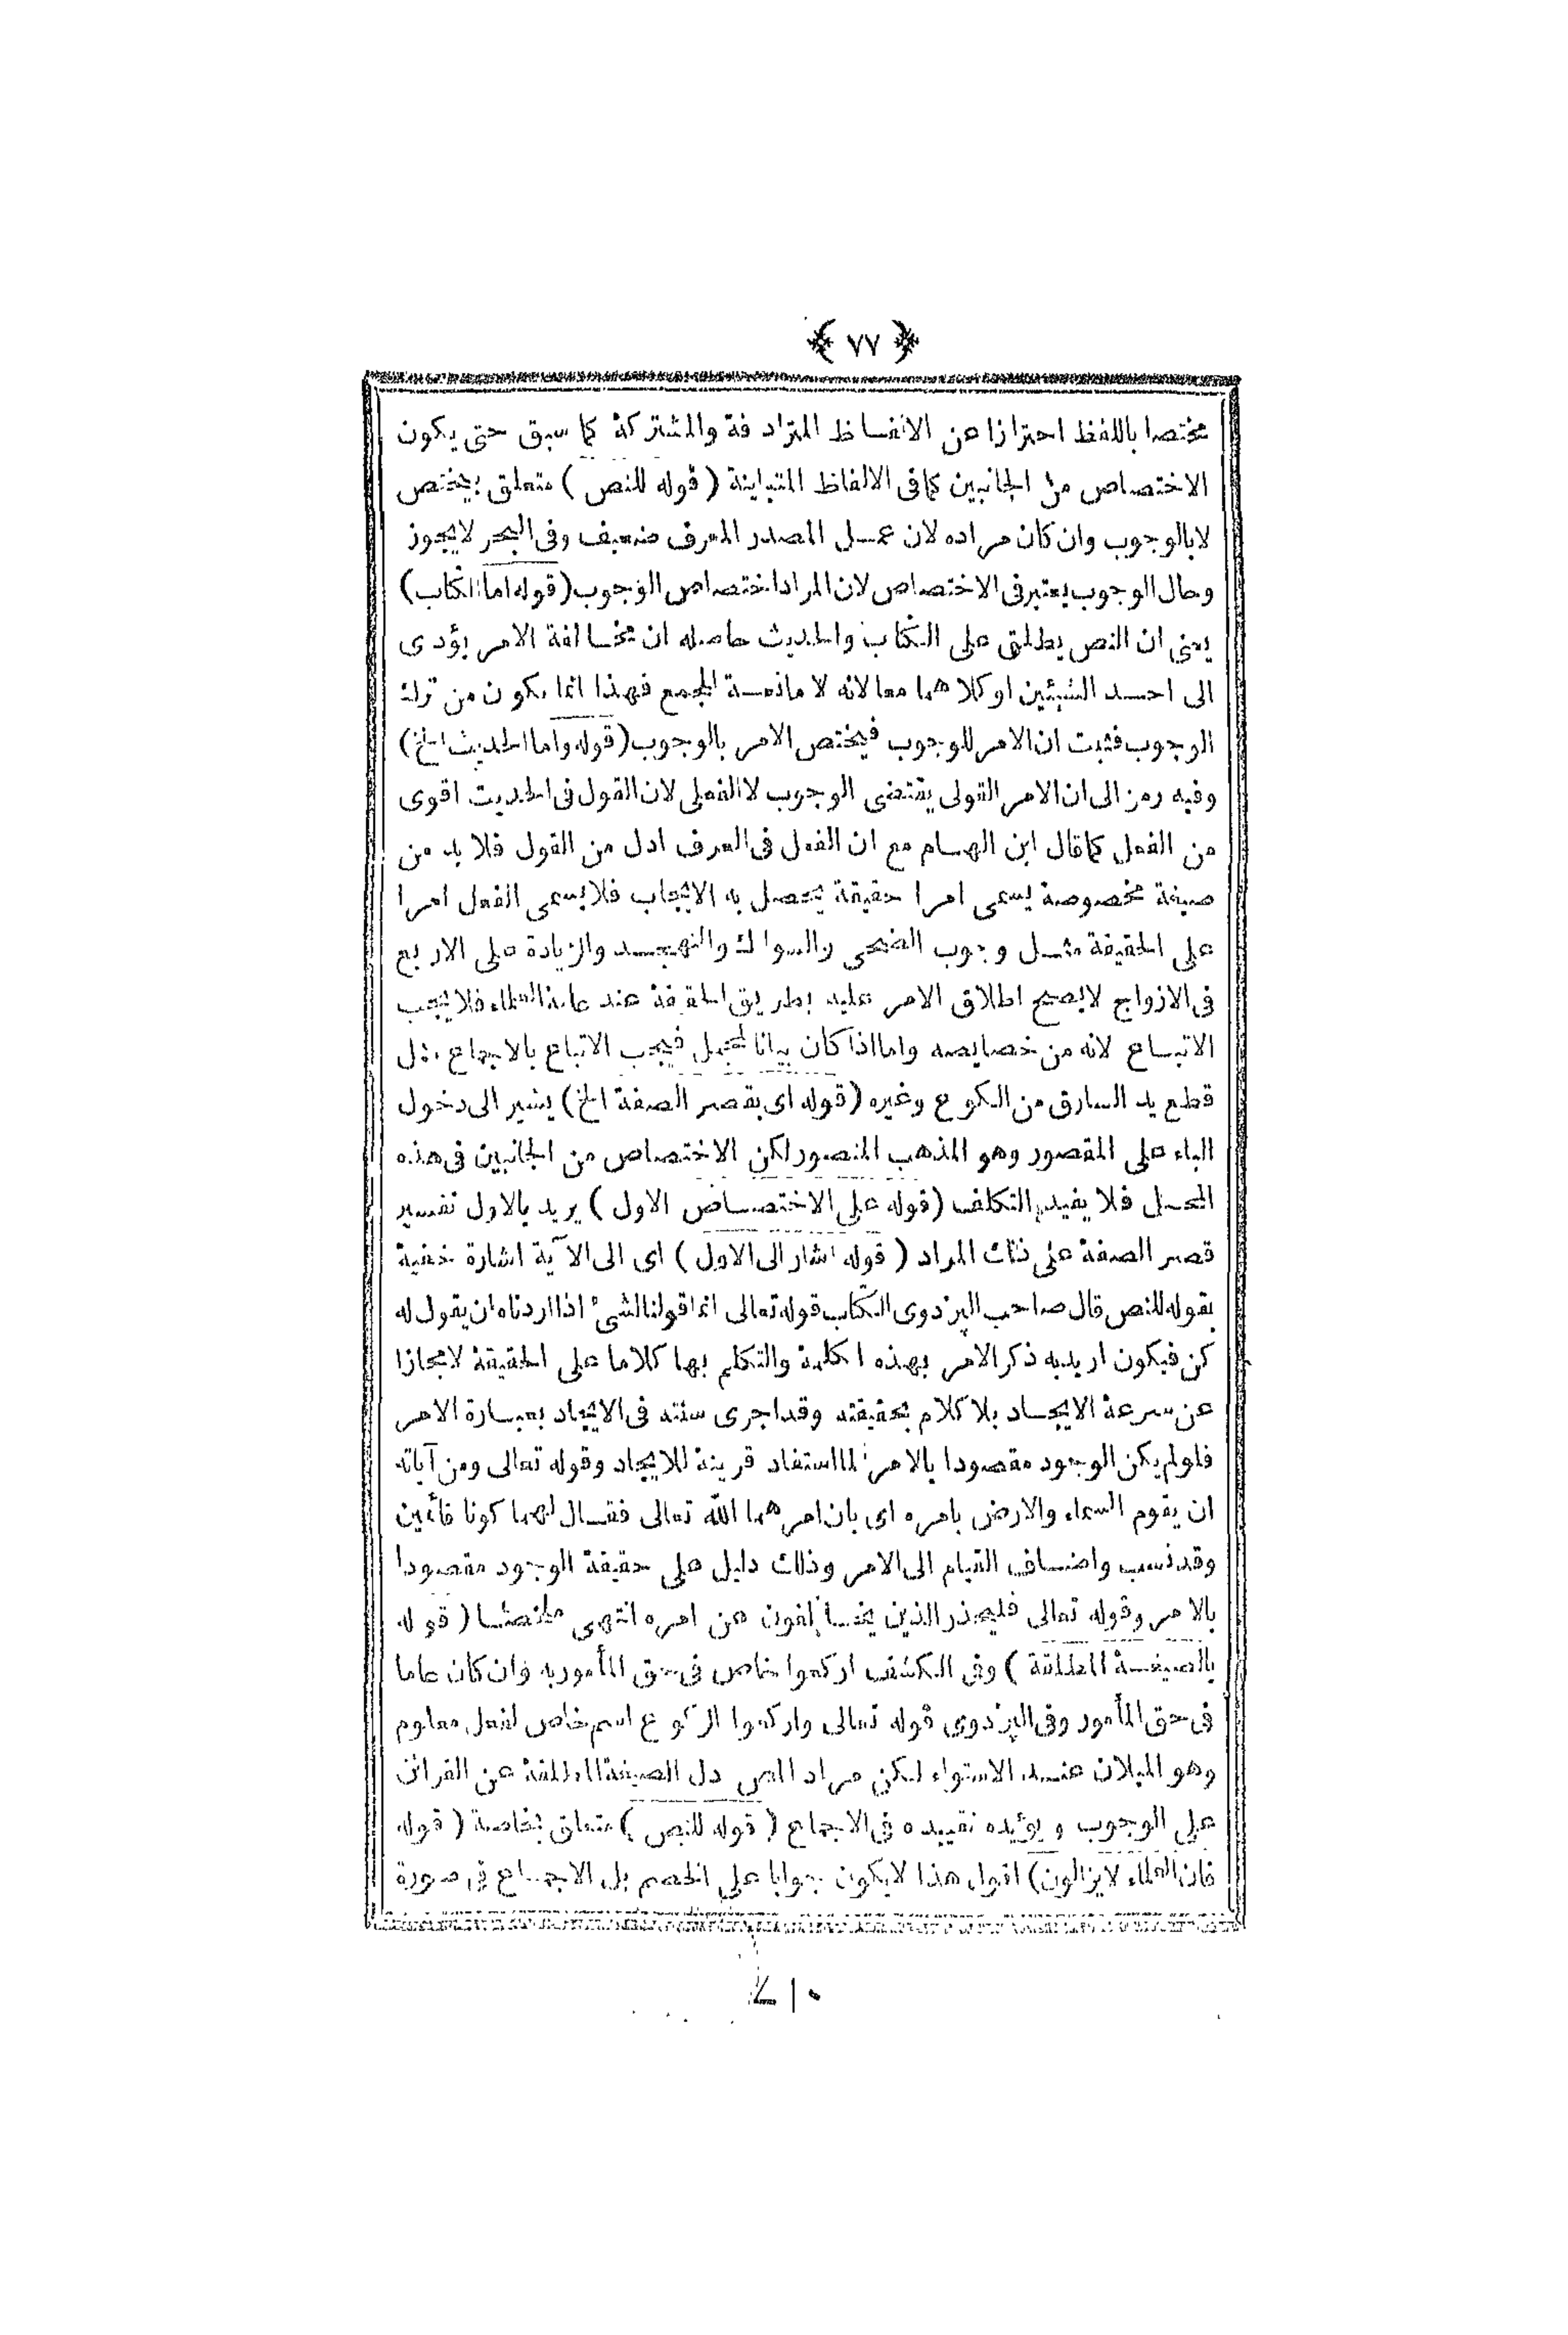 ﴿ ٧٧ ﴾
مختصا باللفظ احترازا عن الالفاظ المترادفة والمشتركة كما سبق حتى يكون
الاختصاص من الجانبين كما فى الالفاظ المتباينة (قوله للنص) متعلق بيختص
لا بالوجوب وان كان مراده لان عمل المصدر المعرف ضعيف وفى البحر لا يجوز
وحال الوجوب يعتبر فى الاختصاص لان المراد اختصاص الوجوب (قوله اما الكتاب)
يعنى ان النص يطلق على الكتاب والحديث حاصله ان مخالفة الامر يؤدى
الى احد الشيئين او كلاهما معا لانه لا مانعة الجمع فهذا انما يكون من ترك
الوجوب فثبت ان الامر للوجوب فيختص الامر بالوجوب (قوله واما الحديث الخ)
وفيه رمز الى ان الامر القولى يقتضى الوجوب لا الفعلى لان القول فى الحديث اقوى
من الفعل كما قال ابن الهمام مع ان الفعل فى العرف ادل من القول فلا بد من
صيغة مخصوصة يسمى امرا حقيقة يحصل به الايجاب فلا يسمى الفعل امرا
على الحقيقة مثل وجوب الضحى والسواك والتهجد والزيادة على الاربع
فى الازواج لا يصح اطلاق الامر عليه بطريق الحقيقة عند عامة العلماء فلا يجب
الاتباع لانه من خصايصه واما اذا كان بيانا لمجمل فيجب الاتباع بالاجماع مثل
قطع يد السارق من الكوع وغيره (قوله اى بقصر الصفة الخ) يشير الى دخول
الباء على المقصور وهو المذهب المنصور لكن الاختصاص من الجانبين فى هذه
المحل فلا يفيد التكلف (قوله على الاختصاص الاول) يريد بالاول تفسير
قصر الصفة على ذلك المراد (قوله اشار الى الاول) اى الى الآية اشارة خفية
بقوله للنص قال صاحب البزدوى الكتاب قوله تعالى انما قولنا لشئ اذا اردناه ان يقول له
كن فيكون اريد به ذكر الامر بهذه الكلمة والتكلم بها كلاما على الحقيقة لا مجازا
عن سرعة الايجاد بلا كلام بحقيقته وقد اجرى سنته فى الايجاد بعبارة الامر
فلو لم يكن الوجود مقصودا بالامر لما استفاد قرينة للايجاد وقوله تعالى ومن آياته
ان يقوم السماء والارض بامره اى بان امرهما الله تعالى فقال لهما كونا قائمين
وقد نسب واضاف القيام الى الامر وذلك دليل على حقيقة الوجود مقصودا
بالامر وقوله تعالى فليحذر الذين يخالفون عن امره انتهى ملخصا (قوله
بالصيغة المطلقة) وفى الكشف اركعوا خاص فى حق المأمور به وان كان عاما
فى حق المأمور وفى البزدوى قوله تعالى واركعوا الركوع اسم خاص لفعل معلوم
وهو الميلان عند الاستواء لكن مراد المص دل الصيغة المطلقة عن القرائن
على الوجوب ويؤيده تقييده فى الاجماع (قوله للنص) متعلق بخاصة (قوله
فان العلماء لا يزالون) اقول هذا لا يكون جوابا على الخصم بل الاجماع فى صورة